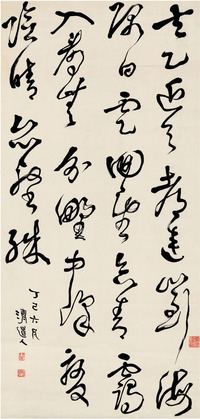 太乙近天都連山到海
隅白雲迴望合青靄
入看無分野中峰變
陰晴衆壑殊
丁巳六月
清道人